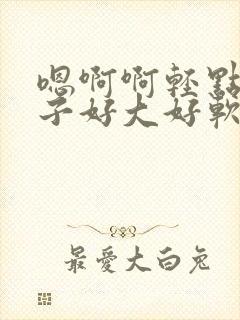 嗯啊啊輕點
子好大好軟
最愛大白兔